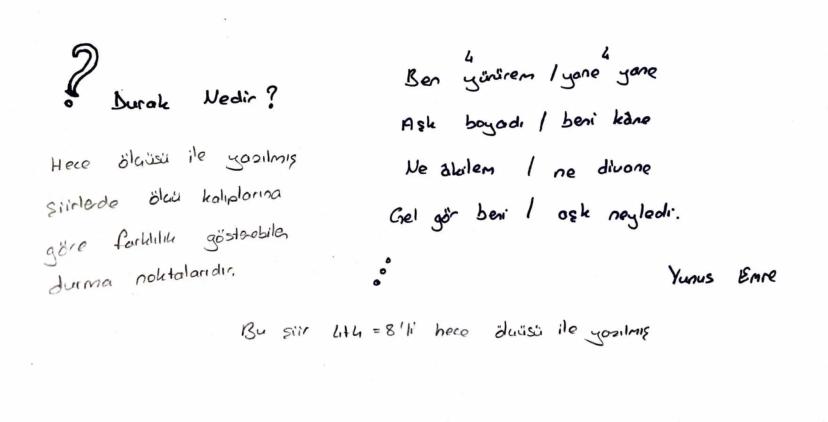 ? Durak Nedir?
Hece ölçüsü ile yazılmış
şiirlerde ölçü kalıplarına
göre farklılık gösterebilen
durma noktalarıdır.
4 4
Ben yürürem / yane yane
Aşk boyadı / beni kâne
Ne âkilem / ne divane
Gel gör beni / aşk neyledi.
Yunus Emre
Bu şiir 4+4 = 8'li hece ölçüsü ile yazılmış